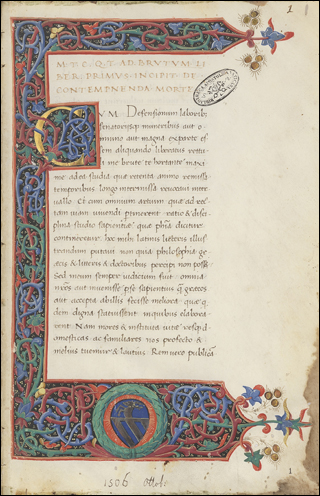 1
M. T. C. Q. T. AD. BRVTVM LI
BER PRIMVS INCIPIT DE
CONTEMPNENDA MORTE
CVM Defensionum laborib;
senatoriisq; muneribus aut o-
mnino aut magna ex parte es
sem aliquando liberatus rettu
li me brute te hortante maxi
me ad ea studia quæ retenta animo remissa
temporibus longo intermissa reuocaui inter
uallo. Et cum omnium artium quæ ad rec
tam uiam uiuendi ptinerent ratio & disci
plina studio sapientiæ quæ phia dicitur
contineretur. hoc mihi latinis literis illus
trandum putaui non quia philosophia gre
cis & literis & doctoribus percipi non poss&
Sed meum semper iudicium fuit omnia
nros aut inuenisse p se sapientius q grecos
aut accepta ab illis fecisse meliora quæ q
dem digna statuissent in quibus elabora
rent. Nam mores & instituta uitæ resq; d-
omesticas ac familiares nos profecto &
melius tuemur & lautius. Rem uero publica
1506 Ottob.
1